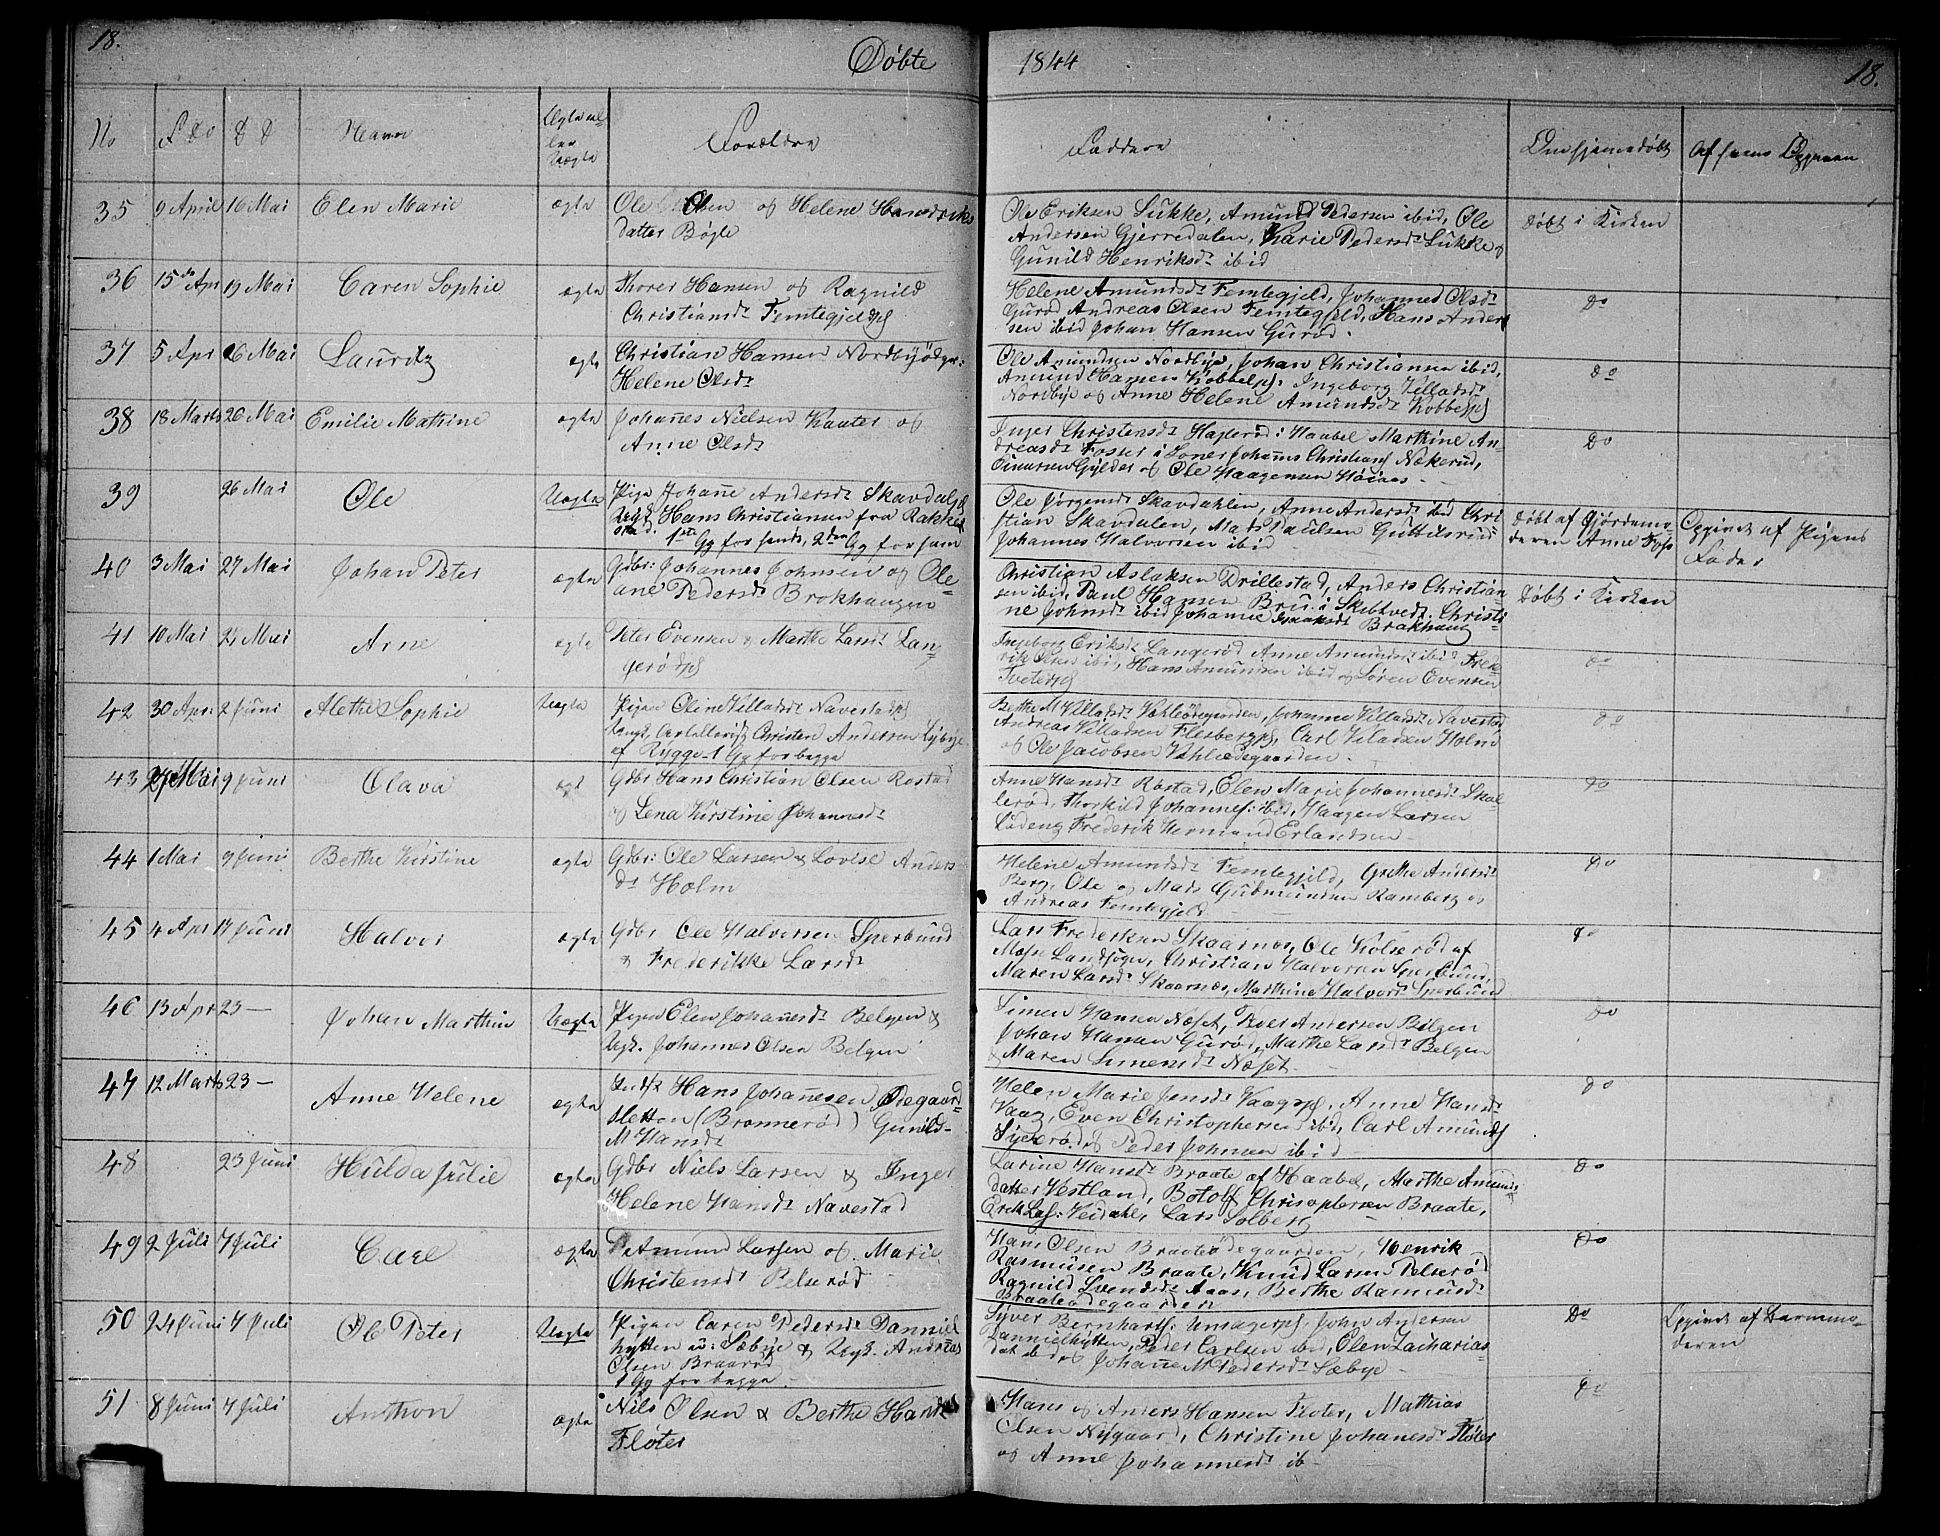 18.
Døbte
1844
18.
No
F D
D D
Navn
Ægte el-
ler
Uægte
Forældre
Faddere
Om hjemmedøbt
35 9 April 16 Mai Elen Marie ægte Ole Olsen og Helene Hendriks
datter Bøgle
Ole Eriksen Lukke, Amund Pedersen ibid, Ole
Andersen Gjerredalen, Karie Pedersd: Lukke og
Gunild Henriksd: ibid
Døbt i Kirken
36 15 Apr 19 Mai Caren Sophie ægte Thorer Hansen og Ragnild
Christiansd: Femtegjeld
Helene Amundsd: Femtegjeld, Johanned Olsd:
Gurød, Andreas Olsen Femtegjeld, Hans Ander
sen ibid Johan Hansen Gurød.
Do
37 5 Apr 26 Mai Lauritz ægte Christian Hansen Nordbyødgn:
Helene Olsd:
Ole Amundsen Nordbye, Johan Christiansen ibid,
Amund Hansen Kobbel, Ingeborg Villadsd:
Nordbye og Anne Helene Amundsd: Kobbel
Do
38 18 Marts 26 Mai Emilie Mathine ægte Johañes Nielsen Knater og
Anne Olsd:
Inger Christensd: Haglerød i Haabel Marthine An-
dreasd: Fosser i Soner Johañes Christians Nekerud,
Einarsen Gylder og Ole Haagensen Høiaas
Do
39 26 Mai Ole Uægte Pige Johañe Andersd: Skavdals
Ungk. Hans Christiansen fra Rakke
stad. 1ste Gg for hende, 2den Gg for ham
Ole Jørgensd: Skavdahlen, Anne Andersd: ibid Chri
stian Skavdalen, Mats Paulsen Guttilsrud
Johannes Halvorsen ibid
Døbt af Gjordemo-
deren Anne Foss
Opgivet af Pigens
Fader
40 3 Mai 27 Mai Johan Peter ægte Gdbr: Johannes Johnsen og Ole-
ane Pedersd: Brokhaugen
Christian Aslaksen Drillestad, Anders Christian-
sen ibid, Paul Hansen Bru i Skibtvedt. Christi-
ne Johnsd: ibid Johanne Isaaksd: Brakhaug
Døbt i Kirken
41 10 Mai 27 Mai Arne ægte Peter Evensen & Marthe Larsd: Lan-
gerød
Ingeborg Eriksd: Langerød Anne Amundsd: ibid Fred-
rik Olsen ibid, Hans Amundsen ibid og Søren Evensen
Tveter
Do
42 30 Apr: 2 Juni Alethe Sophie Uægte Pigen Oline Villadsd: Navestad
Christen Andersen Lybye
af Rygge 1 Gg for begge
Berthe M Villadsd: Vahlødegaarden, Johanne Villadsd: Navestad
Andreas Villadsen Flesberg, Carl Villadsen Holm
og Ole Jacobsen Vahlødegaarden.
Do
43 27 Mai 9 Juni Olava ægt Gdbr Hans Christian Olsen Rostad
og Lena Kirstine Johannesd:
Anne Hansd: Røstad, Elen Marie Johannesd: Skol-
lerød, Thorkild Johannes: ibid, Haagen Larsen
Lødeng Frederik Hermand Erlandsen
Do
44 1 Mai 9 Juni Berthe Kirstine ægte Gdbr: Ole Larsen & Lovise Anders
d: Holm
Helene Amundsd: Femtegjeld, Grethe Andersd:
Berg, Ole og Mads Gudmundsen Ramberg og
Andreas Femtegjeld
Do
45 4 Apr 17 Juni Halvor ægte Gdbr Ole Halvorsen Sperbund
& Frederikke Larsd:
Lars Frederksen Skaarnes, Ole Kolserød af
Mosse Landsogn, Christian Halvorsen Sperbund,
Maren Larsd: Skaarnes, Marthine Halvorsd: Sperbund
Do
46 13 Apr 23 — Johan Marthin Uægte Pigen Elen Johañesd: Belgen &
Ungk. Johannes Olsen Belgen
Simen Hansen Næset, Iver Andersen Bilgen
Johan Hansen Gurød, Marthe Larsd: Belgen
& Maren Simensd: Næset
Do
47 12 Marts 23 — Anne Helene ægte Hans Johañesen Ødegaard-
sletten (Brønnerød) Gunild-
M Hansd:
Helen Marie Jensd: Vaag, Anne Hansd:
Vaag, Even Christophersen ibid, Carl Amunds
og Peder Johnsen ibid
Do
48 23 Juni Hulda Julie ægte Gdbr Niels Larsen & Inger
Helene Hansd: Navestad
Larine Hansd: Braate af Haabel, Marthe Amunds
datter Vestland, Botolf Christophersen Braate,
Erik Las: Veidahl, Lars Solberg
Do
49 2 Juli 7 Juli Carl ægte Amund Larsen og Marie
Christensd: Pelserød
Hans Olsen Braateødegaarden, Henrik
Rasmusen Braate, Knud Larsen Pelserød
Ragnild Svendsd: Aaas, Berthe Rasmusd:
Braateødegaarden
Do
50 24 Juni 7 Juli Ole Peter Uægte Pigen Caren Pedersd: Danniel
hytten u: Sæbye & Ungk. Andreas
Olsen Braarød
1 Gg for begge
Syver Bernharts: Johan Andersen
Dannielhytten, Peder Carlsen ibid, Olen Zacharias-
dat ibid og Johañe M Pedersd: Sæbye
Do
Opgivet af Barnemo-
deren
51 8 Juni 7 Juli Anthon ægte Nils Olsen & Berthe Hansd:
Floter
Hans og Anders Hansen Floter, Mathias
Olsen Nygaard, Christine Johanesd: Fløter
og Anne Johannesd: ib
Do